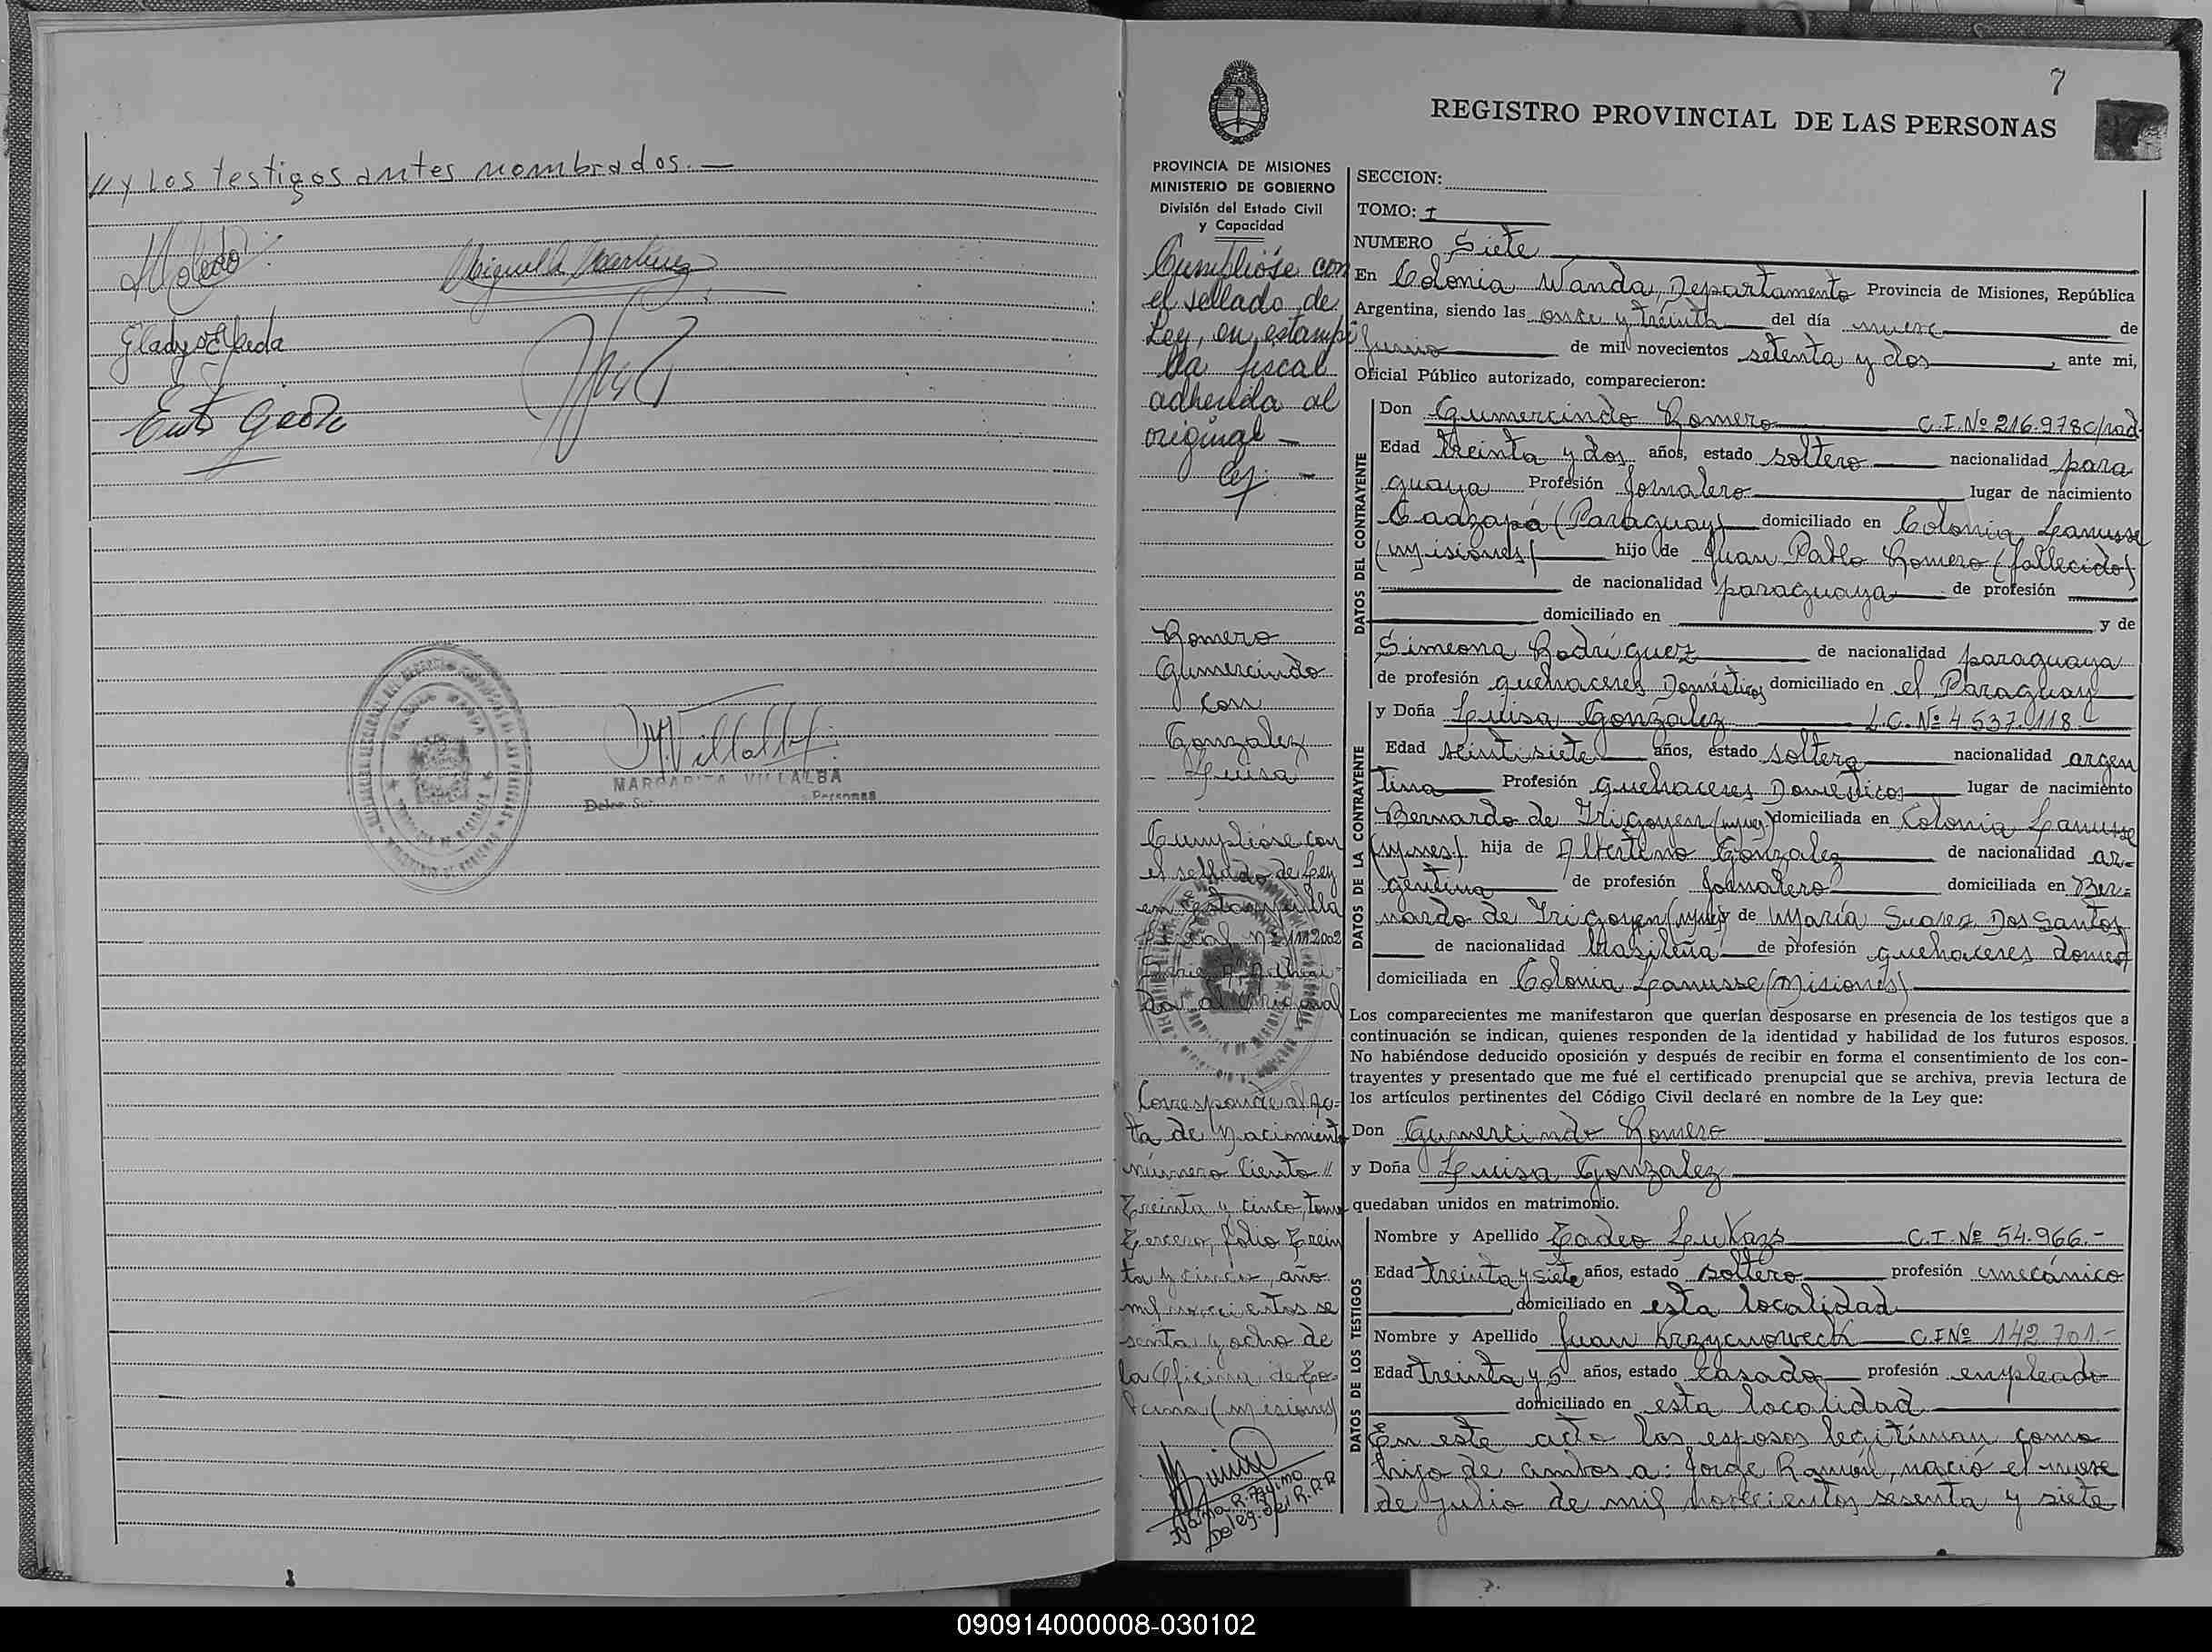 // y Los testigos antes nombrados.—
Gladys Ojeda
MARGARITA VILLALBA
Personas
7
REGISTRO PROVINCIAL DE LAS PERSONAS
PROVINCIA DE MISIONES
MINISTERIO DE GOBIERNO
División del Estado Civil
y Capacidad
Cumplióse con
el sellado de
Ley, en estampi
lla fiscal
adherida al
original —
Romero
Gumercindo
con
Gonzalez
Luisa
Cumplióse con
el sellado de Ley
en estampilla
fiscal Nº 1112002
Serie A Adheri-
da al original
Corresponde al Ac-
ta de Nacimiento
número Ciento //
Treinta y cinco, tomo
Tercero, folio Trein
ta y cinco, año
mil novecientos se
senta y ocho de
la Oficina de
(Misiones)
Deleg. del R.P.P.
SECCION:
TOMO: I
NUMERO Siete
En Colonia Wanda, Departamento Provincia de Misiones, República
Argentina, siendo las once y treinta del día nueve de
Junio de mil novecientos setenta y dos, ante mi,
Oficial Público autorizado, comparecieron:
DATOS DEL CONTRAYENTE
Don Gumercindo Romero C.I.Nº 216.978 c/rad
Edad treinta y dos años, estado soltero nacionalidad para
guaya Profesión Jornalero lugar de nacimiento
Caazapá (Paraguay) domiciliado en Colonia Lanusse
(Misiones) hijo de Juan Pablo Romero (fallecido)
de nacionalidad paraguaya de profesión
domiciliado en y de
Simeona Rodríguez de nacionalidad paraguaya
de profesión quehaceres Domésticos domiciliado en el Paraguay
DATOS DE LA CONTRAYENTE
y Doña Luisa González L.C. Nº 4.537.118.-
Edad veintisiete años, estado soltera nacionalidad argen
tina Profesión Quehaceres Domésticos lugar de nacimiento
Bernardo de Irigoyen (Mnes) domiciliada en Colonia Lanusse
(Mnes). hija de Albertino González de nacionalidad ar=
gentina de profesión Jornalero domiciliada en Ber=
nardo de Irigoyen (Mnes) y de María Suarez Dos Santos
de nacionalidad brasileña de profesión quehaceres domest
domiciliada en Colonia Lanusse (Misiones)
Los comparecientes me manifestaron que querían desposarse en presencia de los testigos que a
continuación se indican, quienes responden de la identidad y habilidad de los futuros esposos.
No habiéndose deducido oposición y después de recibir en forma el consentimiento de los con-
trayentes y presentado que me fué el certificado prenupcial que se archiva, previa lectura de
los artículos pertinentes del Código Civil declaré en nombre de la Ley que:
Don Gumercindo Romero
y Doña Luisa Gonzalez
quedaban unidos en matrimonio.
DATOS DE LOS TESTIGOS
Nombre y Apellido Tadeo Lukazs C.I. Nº 54.966.-
Edad treinta y siete años, estado soltero profesión mecánico
domiciliado en esta localidad
Nombre y Apellido Juan C.I Nº 142.701.-
Edad treinta y 5 años, estado casado profesión empleado
domiciliado en esta localidad
En este acto los esposos legitiman como
hijo de ambos a: Jorge Ramón, nació el nueve
de julio de mil novecientos sesenta y siete
090914000008-030102